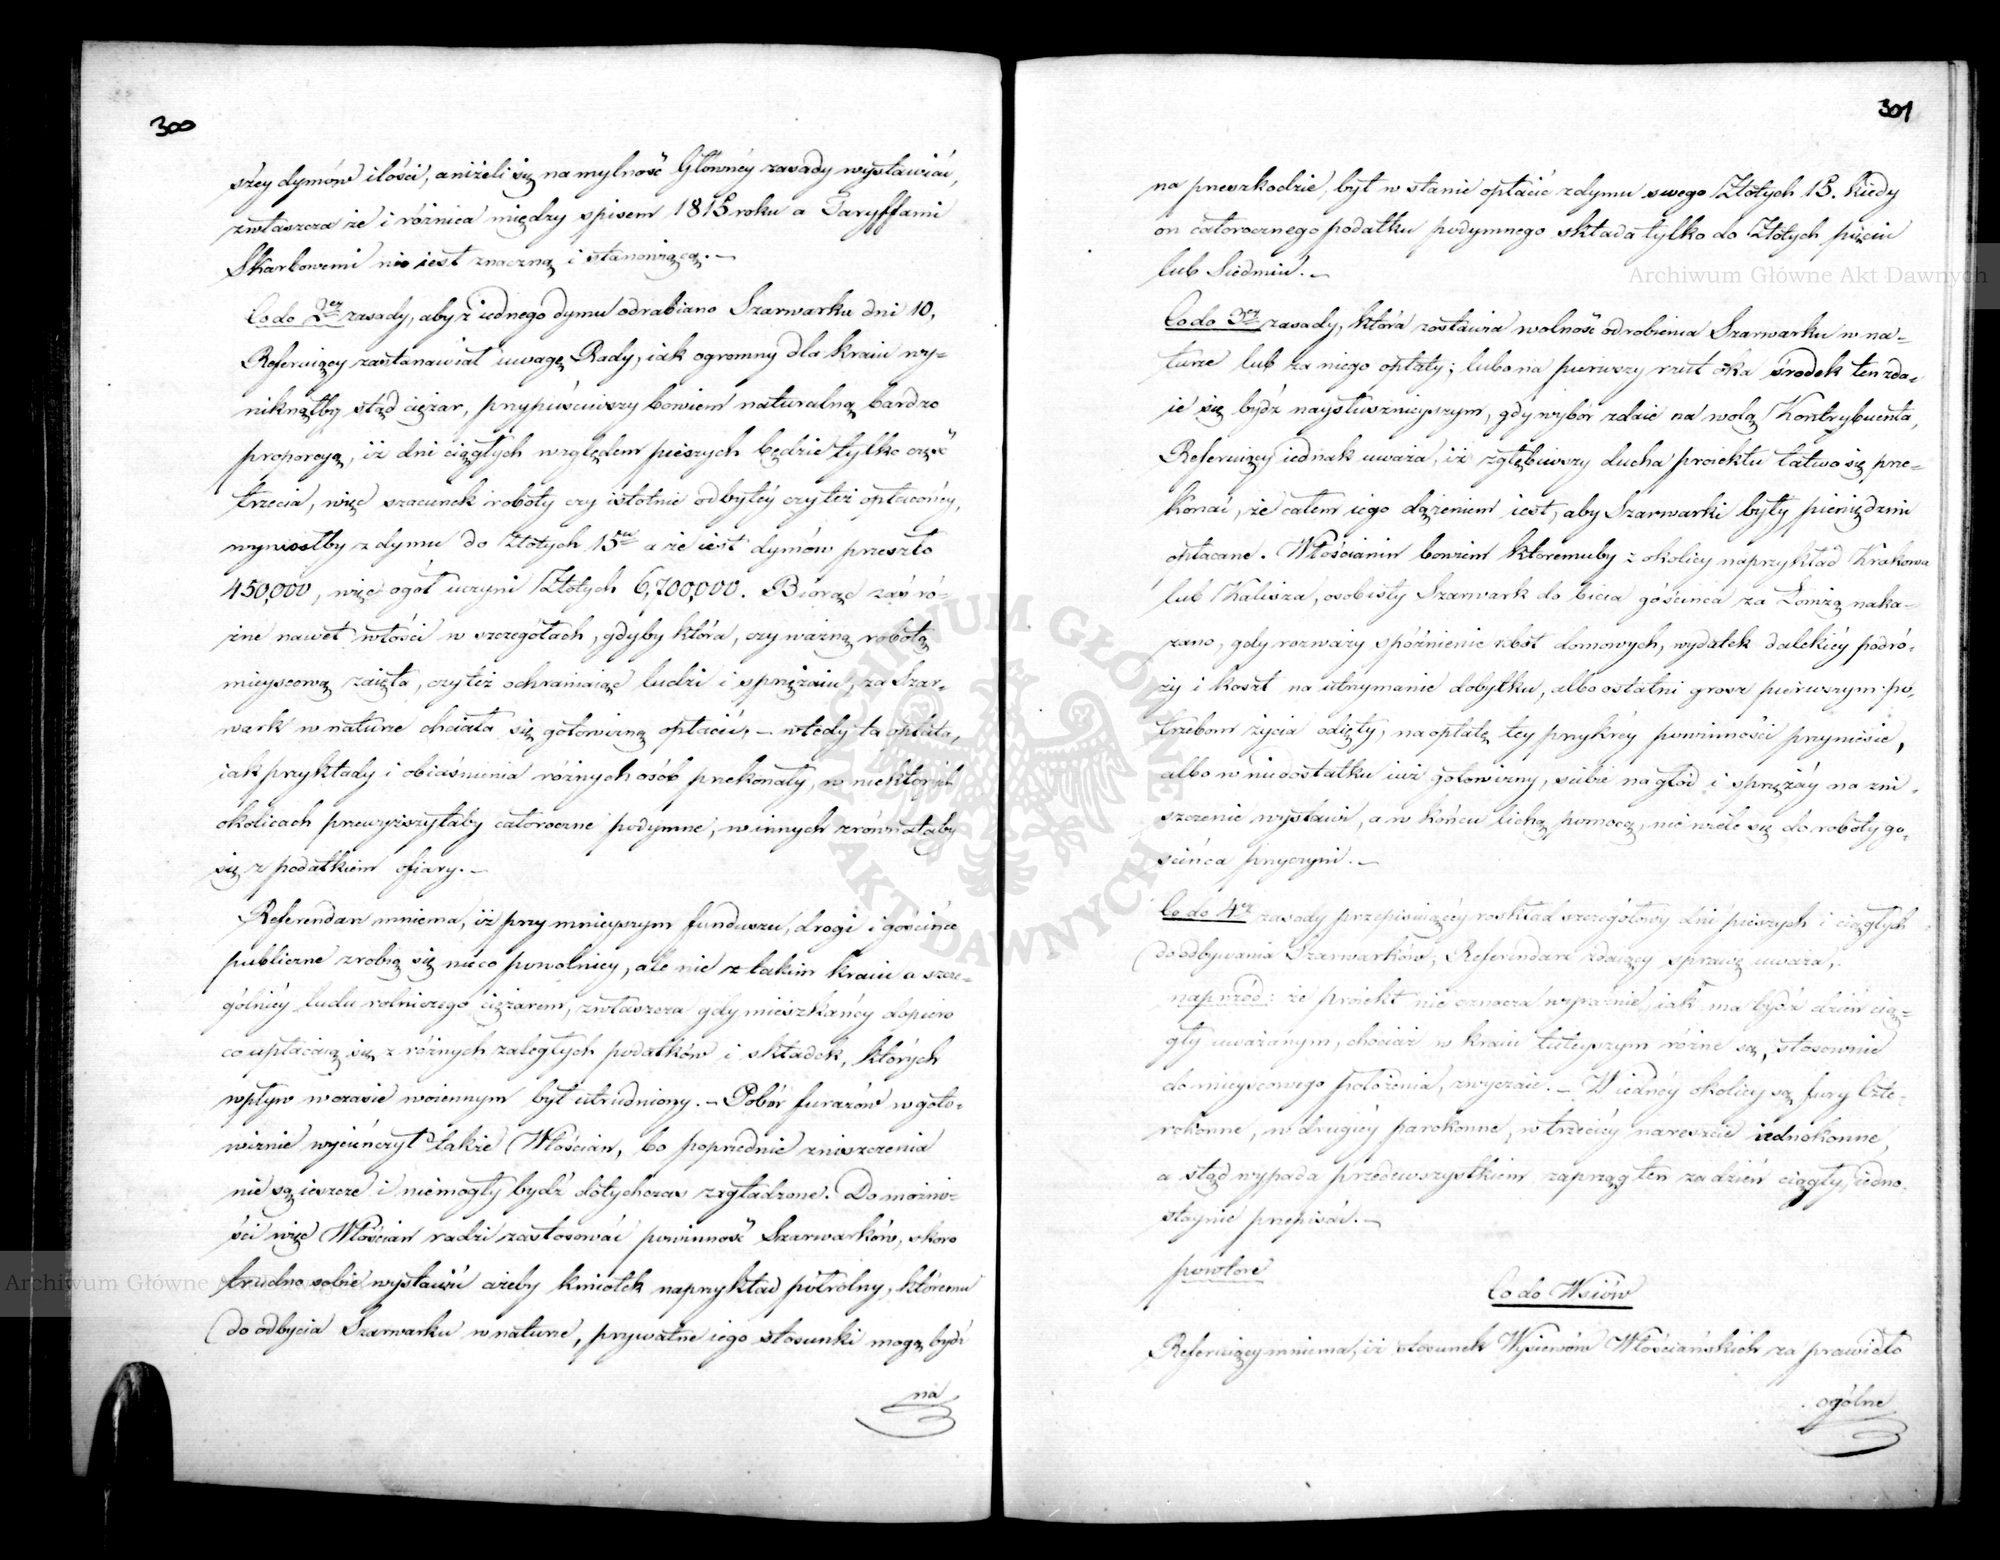 300
szey dymów ilości, aniżeli się na mylność Główney zasady wystawiać,
zwłaszcza że i różnica między spisem 1815 roku a Taryffami
Skarbowemi nie iest znaczną i stanowiącą. —
Co do 2ey zasady, aby z iednego dymu odrabiano Szarwarku dni 10,
Referuiący zastanawiał uwagę Rady, iak ogromny dla kraiu wy-
niknąłby stąd ciężar, przypuściwszy bowiem naturalną bardzo
proporcyą, iż dni ciągłych względem pieszych będzie tylko część
trzecia, więc szacunek roboty czy istotnie odbytéy czy też opłaconéy,
wyniosłby z dymu do Złotych 15tu a że iest dymów przeszło
450,000, więc ogół uczyni Złotych 6,700,000. Biorąc zaś ró-
żne nawet włości w szczegółach, gdyby która, czy ważną robotą
mieyscową zaięta, czy też ochraniaiąc ludzi i sprzężaiu, za Szar-
wark w naturze chciała się gotowizną opłacić, — wtedy ta opłata,
iak przykłady i obiaśnienia różnych osób przekonały, w niektórych
okolicach przewyższyłaby całoroczne podymne, w innych zrównałaby
się z podatkiem ofiary. —
Referendarz mniema, iż przy mnieyszym funduszu, drogi i gościńce
publiczne zrobią się nieco powolniey, ale nie z takim kraiu a szcze-
gólniey ludu rolniczego ciężarem, zwłaszcza gdy mieszkańcy dopiero
co upłacaią się z różnych zaległych podatków i składek, których
wpływ w czasie woiennym był utrudniony. — Pobór furażów w goto-
wiznie wycieńczył także Włościan, bo poprzednie zniszczenia
nie są ieszcze i niemogły bydź dotychczas zagładzone. Do możno-
ści więc Włościan radzi zastosować powinność Szarwarków, skoro
trudno sobie wystawić ażeby kmiotek naprzykład półrolny, któremu
do odbycia Szarwarku w naturze, prywatne iego stosunki mogą bydź
na
301
na przeszkodzie, był w stanie opłacić z dymu swego Złotych 15. kiedy
on całorocznego podatku podymnego składa tylko do Złotych pięciu
lub Siedmiu. —
Co do 3ey zasady, która zostawia wolność odrobienia Szarwarku w na-
turze lub za niego opłaty; lubo na pierwszy rzut oka środek ten zda-
ie się bydź nayslusznieyszym, gdy wybór zdaie na wolą Kontrybuenta,
Referuiący iednak uważa, iż zgłębiwszy ducha proiektu łatwo się prze-
konać, że całem iego dążeniem iest, aby Szarwarki były pieniędzmi
opłacane. Włościanin bowiem któremuby z okolicy naprzykład Krakowa
lub Kalisza, osobisty Szarwark do bicia gościńca za Łomżą naka-
zano, gdy rozważy spóźnienie robót domowych, wydatek dalekiey podró-
ży i koszt na utrzymanie dobytku, albo ostatni grosz pierwszym po-
trzebom życia odięty, na opłatę tey przykréy powinności przyniesie,
albo w niedostatku iuż gotowizny, siebie na głód i sprzężay na zni-
szczenie wystawi, a w końcu lichą pomocą, niewiele się do roboty go-
ścińca przyczyni. —
Co do 4ey zasady przepisuiącéy rozkład szczegółowy dni pieszych i ciągłych
do odbywania Szarwarków, Referendarz zdaiący sprawę uważa,
naprzód: że proiekt nie oznacza wyraźnie, iak ma bydź dzień cią-
gły uważanym, chociaż w kraiu tuteyszym różne są, stosownie
do mieyscowego położenia, zwyczaie. — W iednéy okolicy są fury Czte-
rokonne, w drugiéy parokonne, w trzeciéy nareszcie iednokonne,
a stąd wypada przedewszystkiem zaprząg ten za dzień ciągły, iedno-
staynie przepisać. —
powtóre
Co do Wsiów
Referuiący mniema, iż stosunek Wysiewów Włościańskich za prawidło
ogólne
Archiwum Główne Akt Dawnych
Archiwum Główne Akt Dawnych
ARCHIWUM GŁÓWNE AKT DAWNYCH